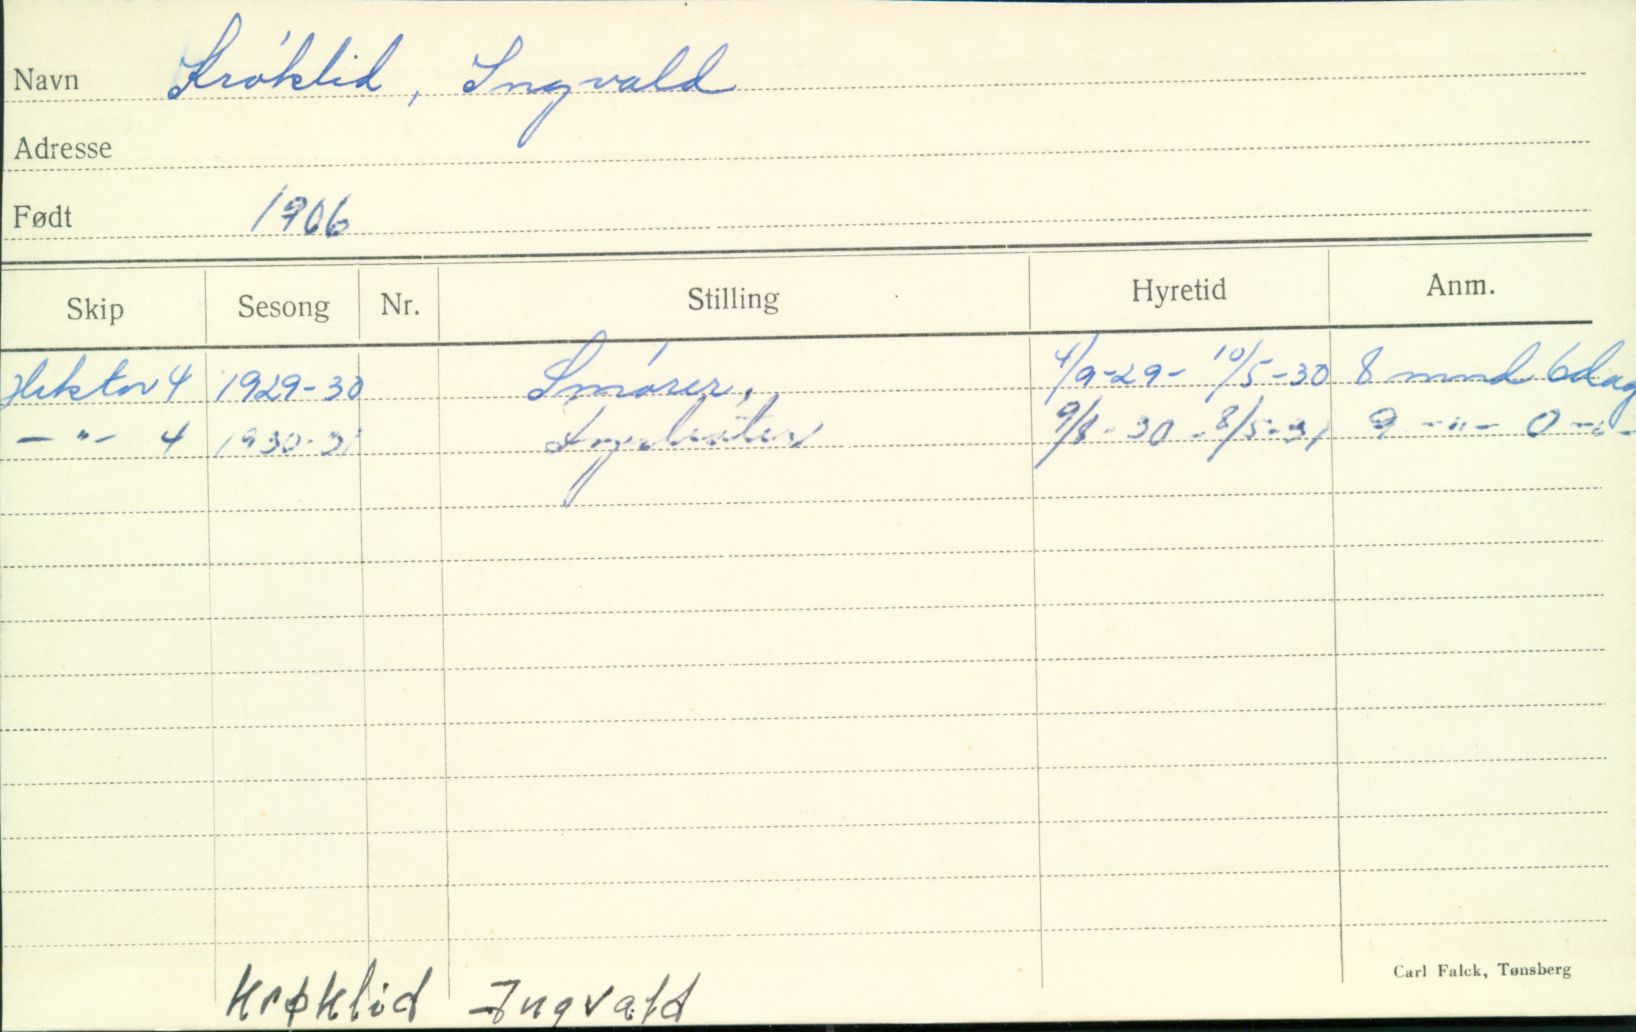 Navn Krøklid, Ingvald
Adresse
Født 1906
Skip Sesong Nr. Stilling Hyretid Anm.
Hektor 4 1929-30 Smører. 4/9-29- 10/5-30 8 mnd 6 dag
-"- 4 1930-31 Fyrbøter 9/8-30-8/5-31 9 -"- 0 -"-
Carl Falck, Tønsberg
Krøklid Ingvald